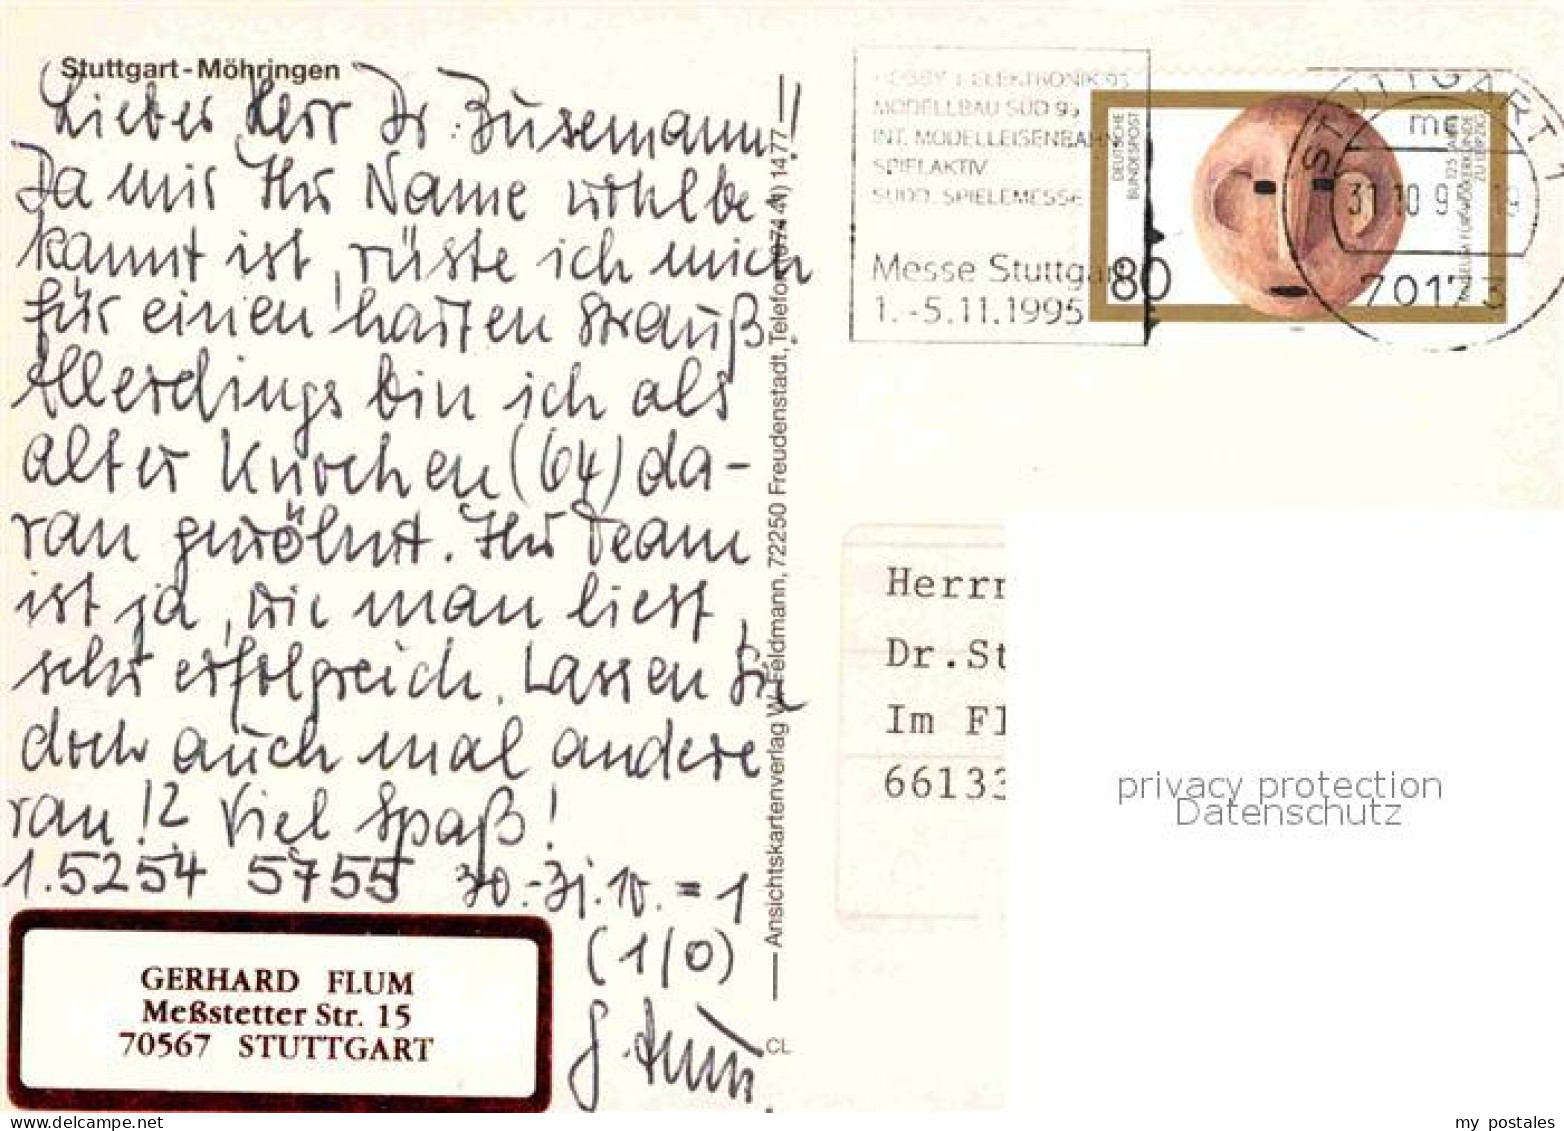 Stuttgart-Möhringen
Lieber Herr Dr. Busemann!
Da mir Ihr Name wohlbe
kannt ist, rüste ich mich
für einen harten Strauß.
Allerdings bin ich als
alter Knochen (64) da-
ran gewöhnt. Ihr Team
ist ja, wie man liest,
sehr erfolgreich. Lassen Sie
doch auch mal andere
ran!? Viel Spaß!
1.5254 5755 30.-31.10. = 1
(1/0)
G. Flum
GERHARD FLUM
Meßstetter Str. 15
70567 STUTTGART
Ansichtskartenverlag W. Feldmann, 72250 Freudenstadt, Telefon (074 41) 14 77
CL
HOBBY + ELEKTRONIK 95
MODELLBAU SÜD 95
INT. MODELLEISENBAHN
SPIELAKTIV
SÜDD. SPIELEMESSE
Messe Stuttgart
1.-5.11.1995
DEUTSCHE
BUNDESPOST
80
125 JAHRE
MUSEUM FÜR VÖLKERKUNDE
ZU LEIPZIG
STUTTGART 1
mn
31.10.95 18
70173
Herrn
Dr.St
Im Fl
66133
privacy protection
Datenschutz
my postales